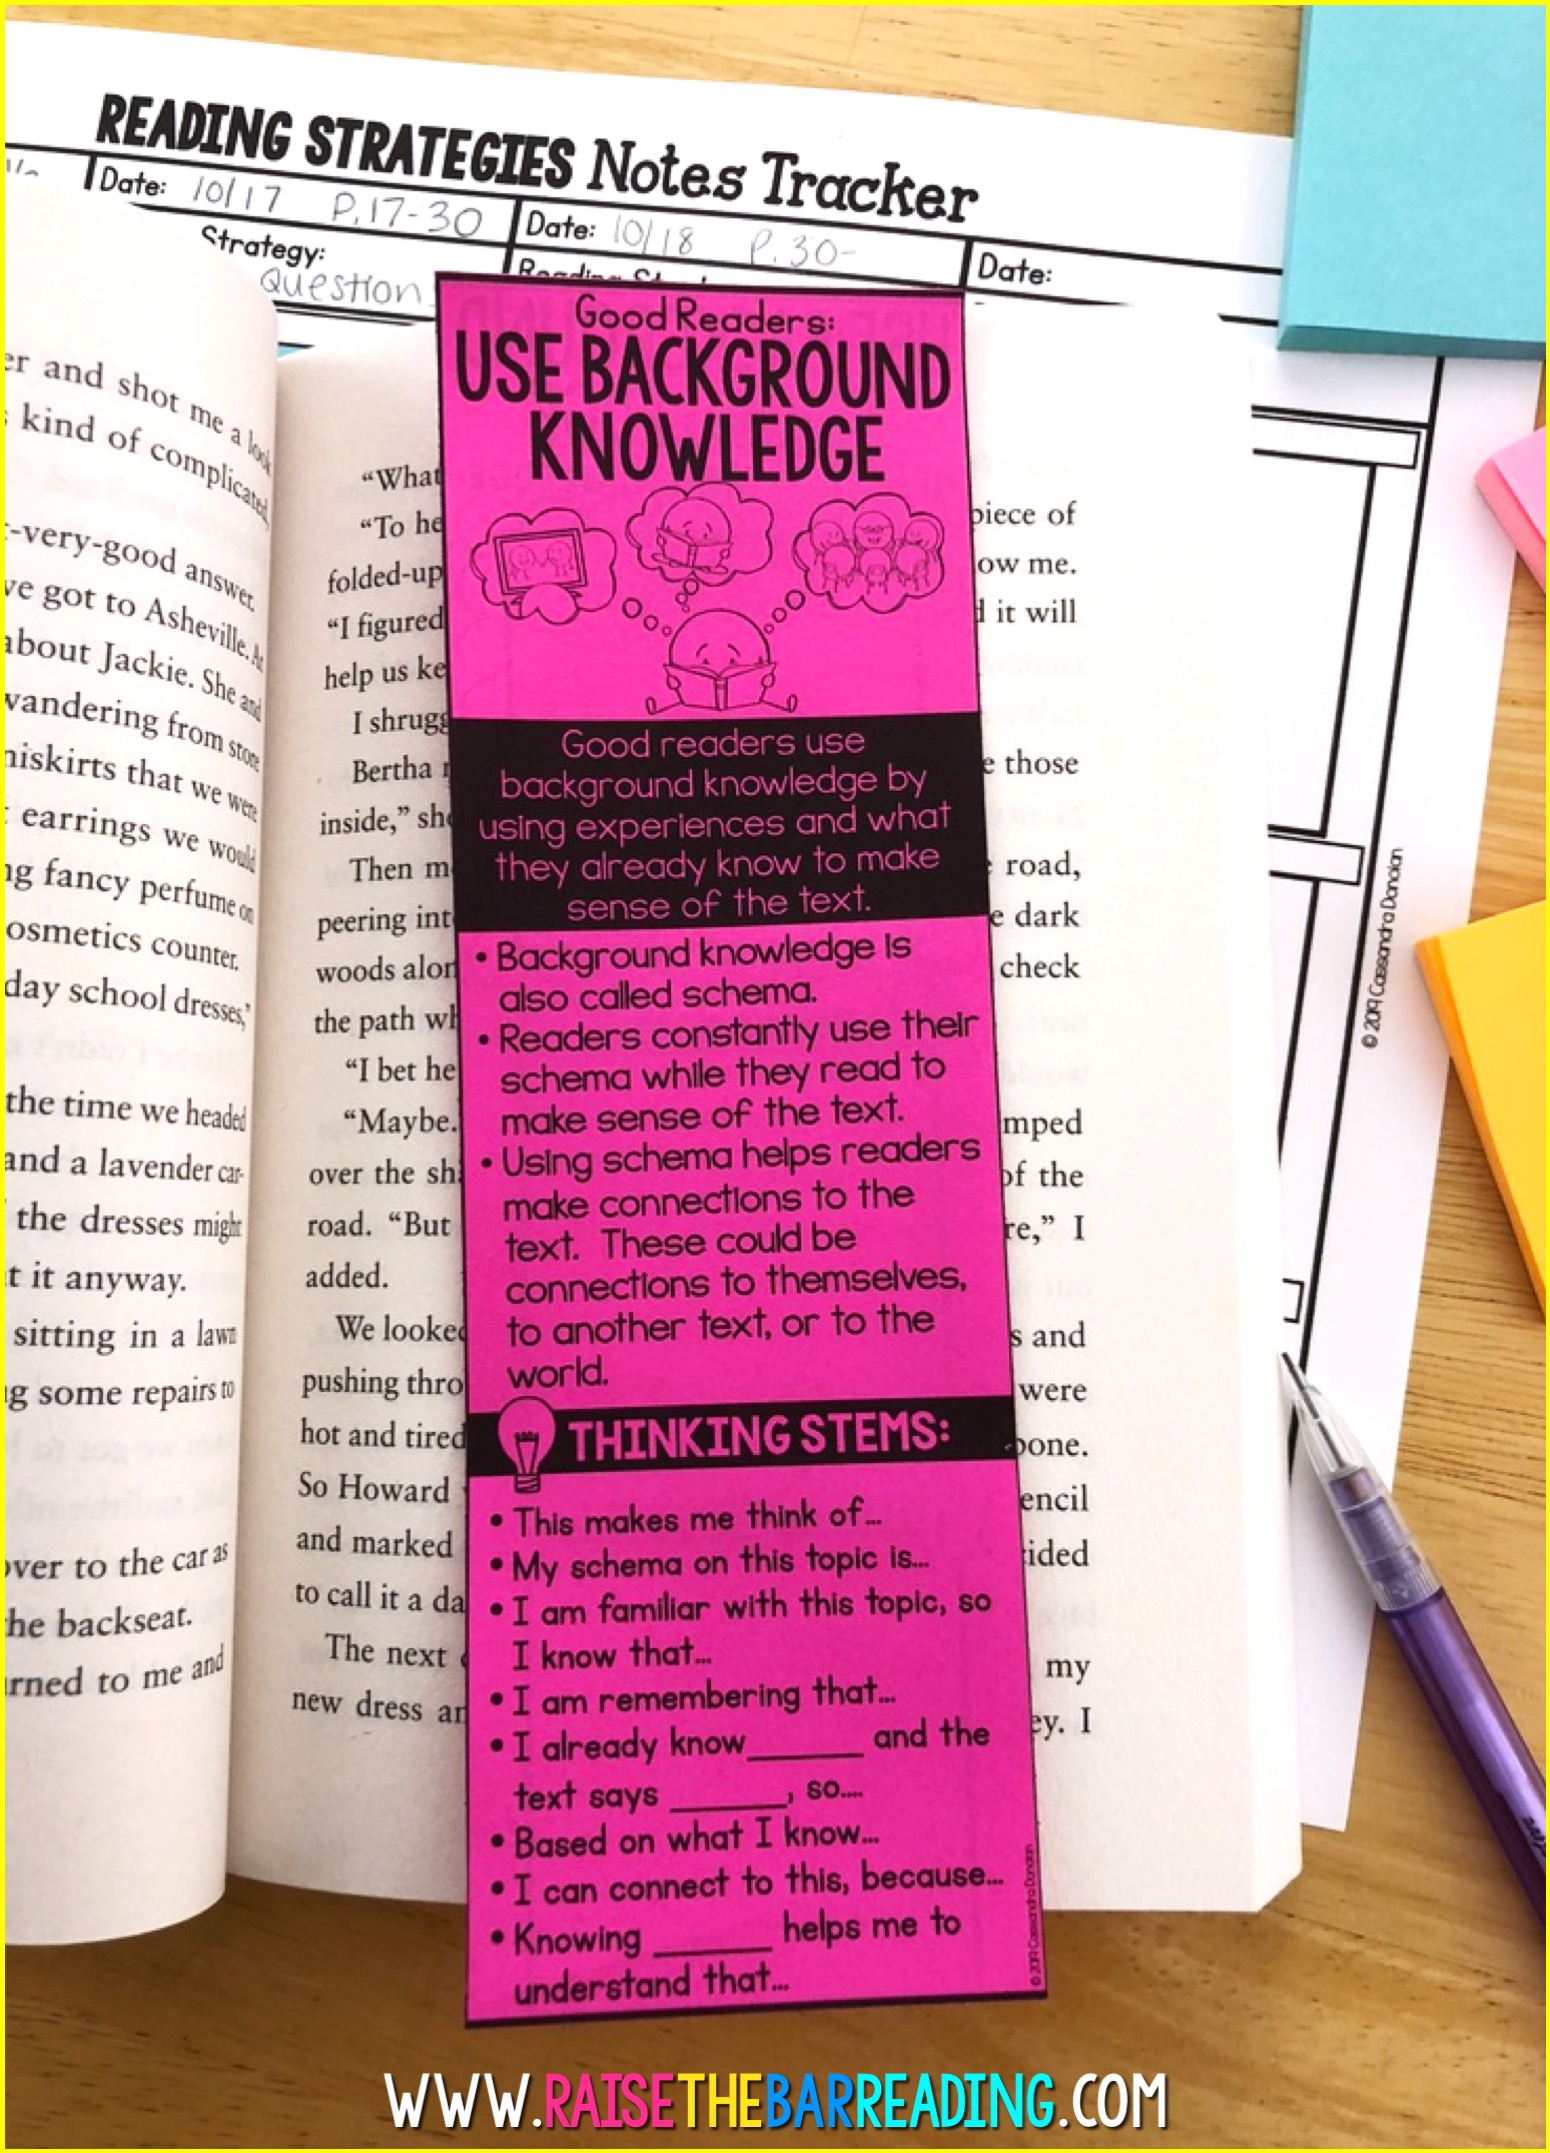 READING STRATEGIES Notes Tracker
Date: 10/17 P.17-30
Date: 10/18 P.30-
Date:
Strategy:
Question
Reading
er and shot me a look
kind of complicated,
-very-good answer.
ve got to Asheville. At
about Jackie. She and
wandering from store
niskirts that we were
earrings we would
ng fancy perfume on
osmetics counter.
day school dresses,"
the time we headed
and a lavender car-
the dresses might
t it anyway.
sitting in a lawn
g some repairs to
over to the car as
he backseat.
rned to me and
"What
"To he
folded-up
"I figured
help us ke
I shrugg
Bertha
inside," she
Then m
peering int
woods alon
the path wh
"I bet he
"Maybe.
over the sha
road. "But
added.
We looked
pushing thro
hot and tired
So Howard
and marked
to call it a da
The next
new dress an
piece of
ow me.
d it will
e those
road,
e dark
check
mped
of the
re," I
s and
were
bone.
encil
ided
my
ey. I
Good Readers:
USE BACKGROUND
KNOWLEDGE
Good readers use
background knowledge by
using experiences and what
they already know to make
sense of the text.
• Background knowledge is
also called schema.
• Readers constantly use their
schema while they read to
make sense of the text.
• Using schema helps readers
make connections to the
text. These could be
connections to themselves,
to another text, or to the
world.
THINKING STEMS:
• This makes me think of...
• My schema on this topic is...
• I am familiar with this topic, so
I know that...
• I am remembering that...
• I already know______ and the
text says ______, so....
• Based on what I know...
• I can connect to this, because...
• Knowing ______ helps me to
understand that...
© 2019 Cassandra Danoian
© 2019 Cassandra Danoian
WWW.RAISETHEBARREADING.COM